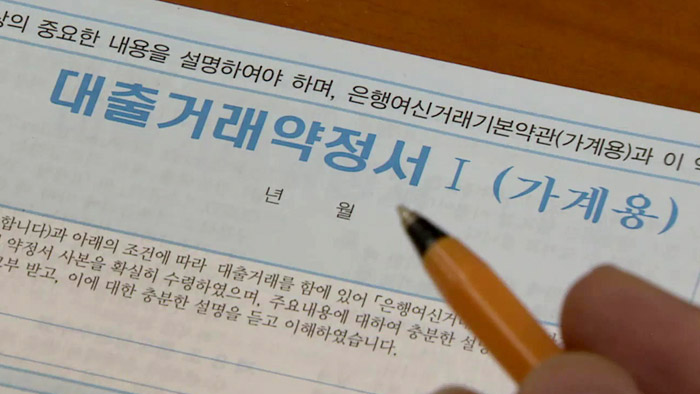 상의 중요한 내용을 설명하여야 하며, 은행여신거래기본약관(가계용)과 이
대출거래약정서 I (가계용)
년 월
합니다)과 아래의 조건에 따라 대출거래를 함에 있어 「은행여신거
약정서 사본을 확실히 수령하였으며, 주요내용에 대하여 충분한 설명
받고, 이에 대한 충분한 설명을 듣고 이해하였습니다.